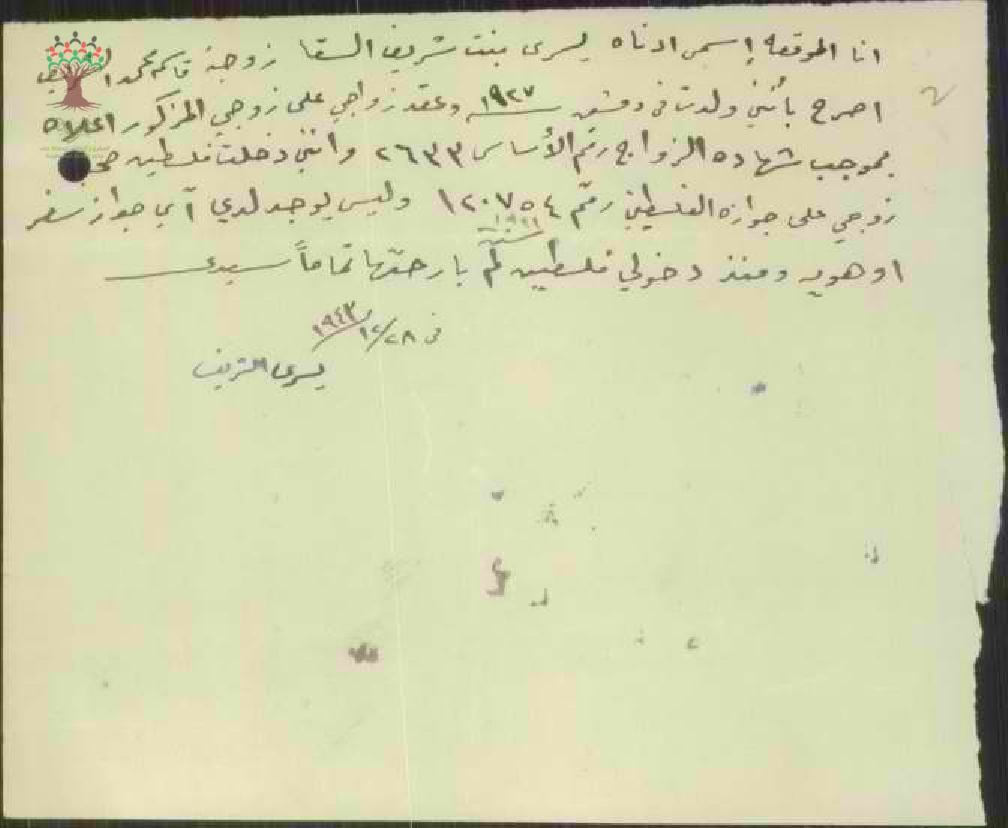 انا الموقعه إسمي ادناه يسرى بنت شريف السقا زوجة قاسم محمد
اصرح بأنني ولدت في دمشق سنة ١٩٢٧ وعقد زواجي على زوجي المذكور اعلاه
بموجب شهاده الزواج رقم الأساس ٢٦٣٣ وانني دخلت فلسطين
زوجي على جوازه الفلسطيني رقم ١٢٠٧٥٤ وليس يوجد لدي آي جواز سفر
سنة
او هويه ومنذ دخولي فلسطين لم ابارحها تماماً سيدي
في ١٩٤٣/١٢/٢٨
يسرى الشريف